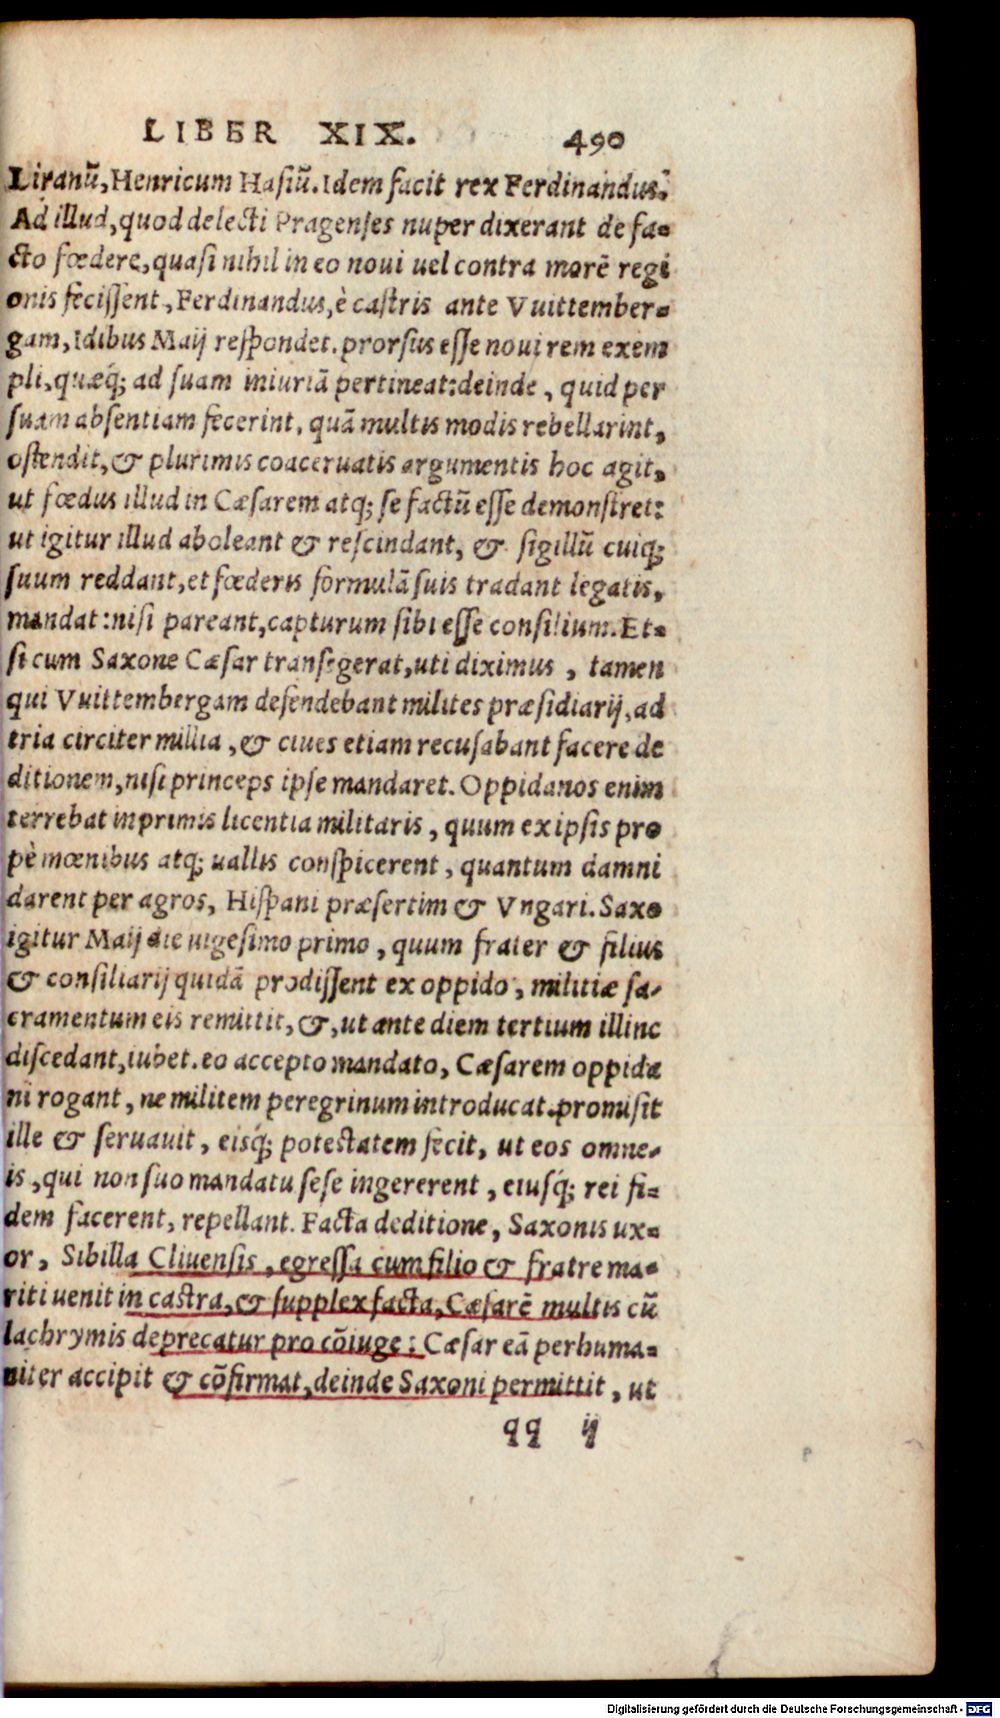 LIBER XIX. 490
Liranū, Henricum Hasiū. Idem facit rex Ferdinandus.
Ad illud, quod delecti Pragenses nuper dixerant de fa-
cto fœdere, quasi nihil in eo noui uel contra morē regi
onis fecissent, Ferdinandus, è castris ante Vuittember-
gam, Idibus Maij respondet. prorsus esse noui rem exem
pli, quæq́; ad suam iniuriā pertineat: deinde, quid per
suam absentiam fecerint, quā multis modis rebellarint,
ostendit, & plurimis coaceruatis argumentis hoc agit,
ut fœdus illud in Cæsarem atq; se factū esse demonstret:
ut igitur illud aboleant & rescindant, & sigillū cuiq;
suum reddant, et fœderis formulā suis tradant legatis,
mandat: nisi pareant, capturum sibi esse consilium. Et-
si cum Saxone Cæsar transegerat, uti diximus, tamen
qui Vuittembergam defendebant milites præsidiarij, ad
tria circiter millia, & ciues etiam recusabant facere de
ditionem, nisi princeps ipse mandaret. Oppidanos enim
terrebat inprimis licentia militaris, quum ex ipsis pro
pè mœnibus atq; uallis conspicerent, quantum damni
darent per agros, Hispani præsertim & Vngari. Saxo
igitur Maij die uigesimo primo, quum frater & filius
& consiliarij quidā prodissent ex oppido, militiæ sa-
cramentum eis remittit, &, ut ante diem tertium illinc
discedant, iubet. eo accepto mandato, Cæsarem oppida
ni rogant, ne militem peregrinum introducat. promisit
ille & seruauit, eisq́; potestatem fecit, ut eos omne-
is, qui non suo mandatu sese ingererent, eiusq́; rei fi-
dem facerent, repellant. Facta deditione, Saxonis ux-
or, Sibilla Cliuensis, egressa cum filio & fratre ma-
riti uenit in castra, & supplex facta, Cæsarē multis cū
lachrymis deprecatur pro cōiuge: Cæsar eā perhuma-
niter accipit & cōfirmat, deinde Saxoni permittit, ut
qq ij
Digitalisierung gefördert durch die Deutsche Forschungsgemeinschaft - DFG